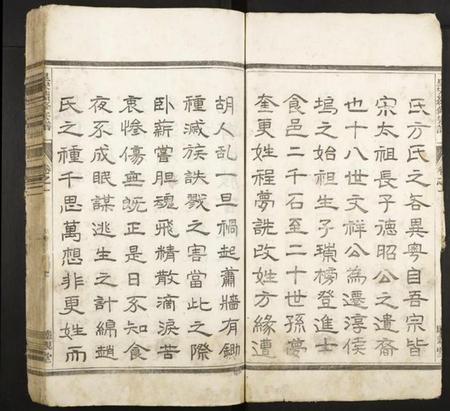 氏方氏之各異粤自吾宗皆
宋太祖長子德昭公之遺裔
也十八世文祥公為遷淳侯
塢之始祖生子瑞榜登進士
食邑二千石至二十世孫夢
奎更姓程夢詵改姓方緣遭
胡人亂一旦禍起蕭牆有鋤
種滅族誅戮之害當此之際
卧薪嘗膽魂飛精散滴淚苦
哀慘傷無既正是日不知食
夜不成眠謀逃生之計綿趙
氏之種千思萬想非更姓而